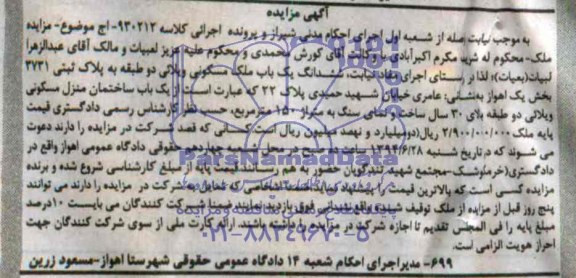 آگهی مزایده
به موجب نیابت صله از شعبه اول اجرای احکام مدنی شیراز و پرونده اجرائی کلاسه ۹۳۰۲۱۲- اج موضوع- مزایده
ملک- محکوم له شرید مکرم اکبرآبادی با وکالت آقای کورش محمدی و محکوم علیه عزیز لعبیات و مالک آقای عبدالزهرا
لبیات (بعیات): لذا در راستای اجرای مفاد نیابت، ششدانگ یک باب ملک مسکونی ویلائی دو طبقه به پلاک ثبتی ۳۷۳۱
بخش یک اهواز به نشانی: عامری خیابان شهید حمیدی پلاک ۲۲ که عبارت است از یک باب ساختمان منزل مسکونی
ویلائی دو طبقه بلای ۳۰ سال ساخت و نمای سنگ به متراژ ۱۵۰ مترمربع، حسب نظر کارشناس رسمی دادگستری قیمت
پایه ملک ۲/۹۰۰/۰۰۰/۰۰۰ ریال (دو میلیارد و نهصد میلیون ریال) است کسانی که قصد شرکت در مزایده را دارند دعوت
می شوند که در تاریخ شنبه ۱۳۹۴/۶/۲۸ ساعت صبح در محل شعبه چهاردهم حقوقی دادگاه عمومی اهواز واقع در
دادگستری (خرمکوشک- مجتمع شهید تندگویان حضور به هم رسانند قیمت پایه از مبلغ کارشناسی شروع شده و برنده
مزایده کسی است که بالاترین قیمت را پیشنهاد نماید ضمناً اشخاصی که تمایل به شرکت در مزایده را دارند می توانند
پنج روز قبل از مزایده از ملک توقیف شده واقع نشانی فوق بازدید نمایند ضمنا شرکت کنندگان می بایست ۱۰ درصد
مبلغ پایه را فی المجلس تقدیم تا اجازه شرکت در مزایده را داشته باشند. ارائه کارت ملی از سوی شرکت کنندگان جهت
احراز هویت الزامی است.
۶۹۹- مدیر اجرای احکام شعبه ۱۴ دادگاه عمومی حقوقی شهرستا اهواز- مسعود زرین
ParsNamadData
۰۲۱-۸۸۳۴۹۶۷۰-۵